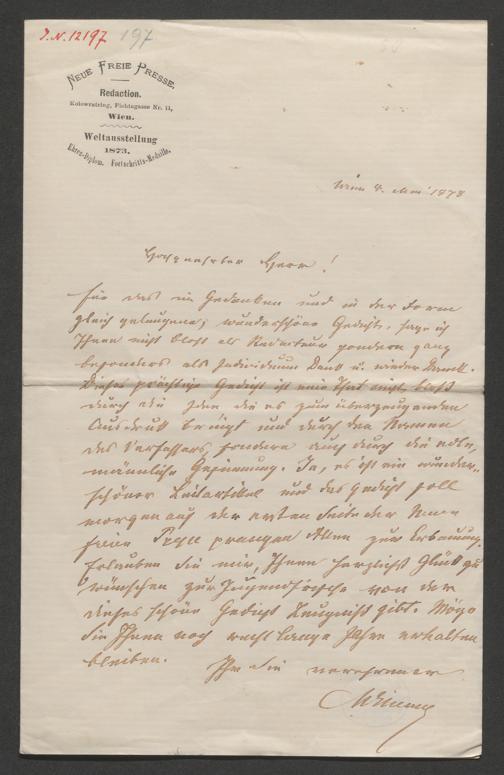 J.N. 12197 197
NEUE FREIE PRESSE.
Redaction.
Kolowratring, Fichtegasse Nr. 11,
Wien.
Weltausstellung
1873.
Ehren-Diplom. Fortschritts-Medaille.
Wien 4. Mai 1878
Hochgeehrter Herr!
Für das in Gedanken und in der Form
gleich gelungene, wunderschöne Gedicht, sage ich
Ihnen nicht bloß als Redacteur sondern ganz
besonders als Individuum Dank u. wieder Dank.
Dieses prächtige Gedicht ist eine That nicht bloß
durch die Idee die es zum überzeugenden
Ausdruck bringt und durch den Namen
des Verfassers, sondern auch durch die edle,
männliche Gesinnung. Ja, es ist ein wunder-
schöner Leitartikel und das Gedicht soll
morgen auf der ersten Seite der Neuen
freien Presse prangen Allen zur Erbauung.
Erlauben Sie mir, Ihnen herzlichst Glück zu
wünschen zur Jugendfrische von der
dieses schöne Gedicht Zeugniß gibt. Möge
sie Ihnen noch recht lange Jahre erhalten
bleiben.
Ihr Sie verehrender